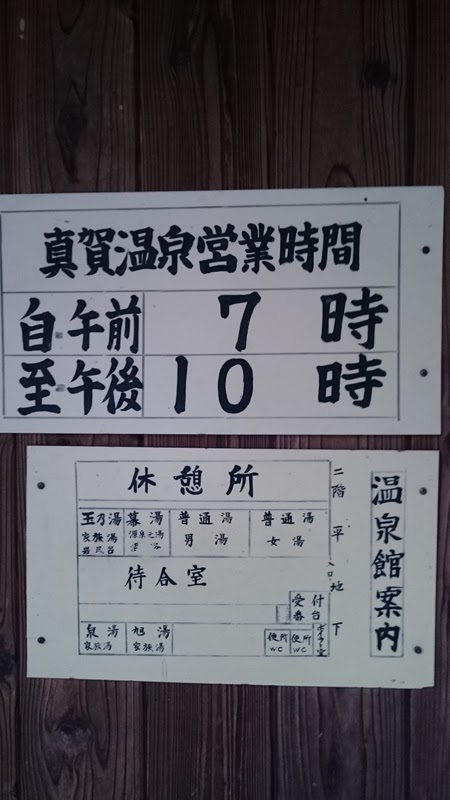 真賀温泉営業時間
自 午前 7 時
至 午後 10 時
温泉館案内
二階 平 入口 地下
休憩所
玉乃湯 幕湯 普通湯 普通湯
家族湯 源泉元湯 男湯 女湯
待合室
受付
番台
ボイラー室
泉湯 旭湯 便所 便所
家族湯 家族湯 WC WC